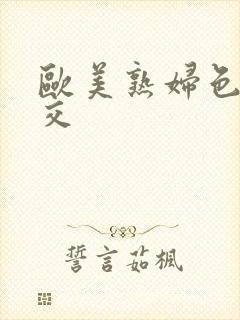 歐美熟婦色
交
誓言茹楓